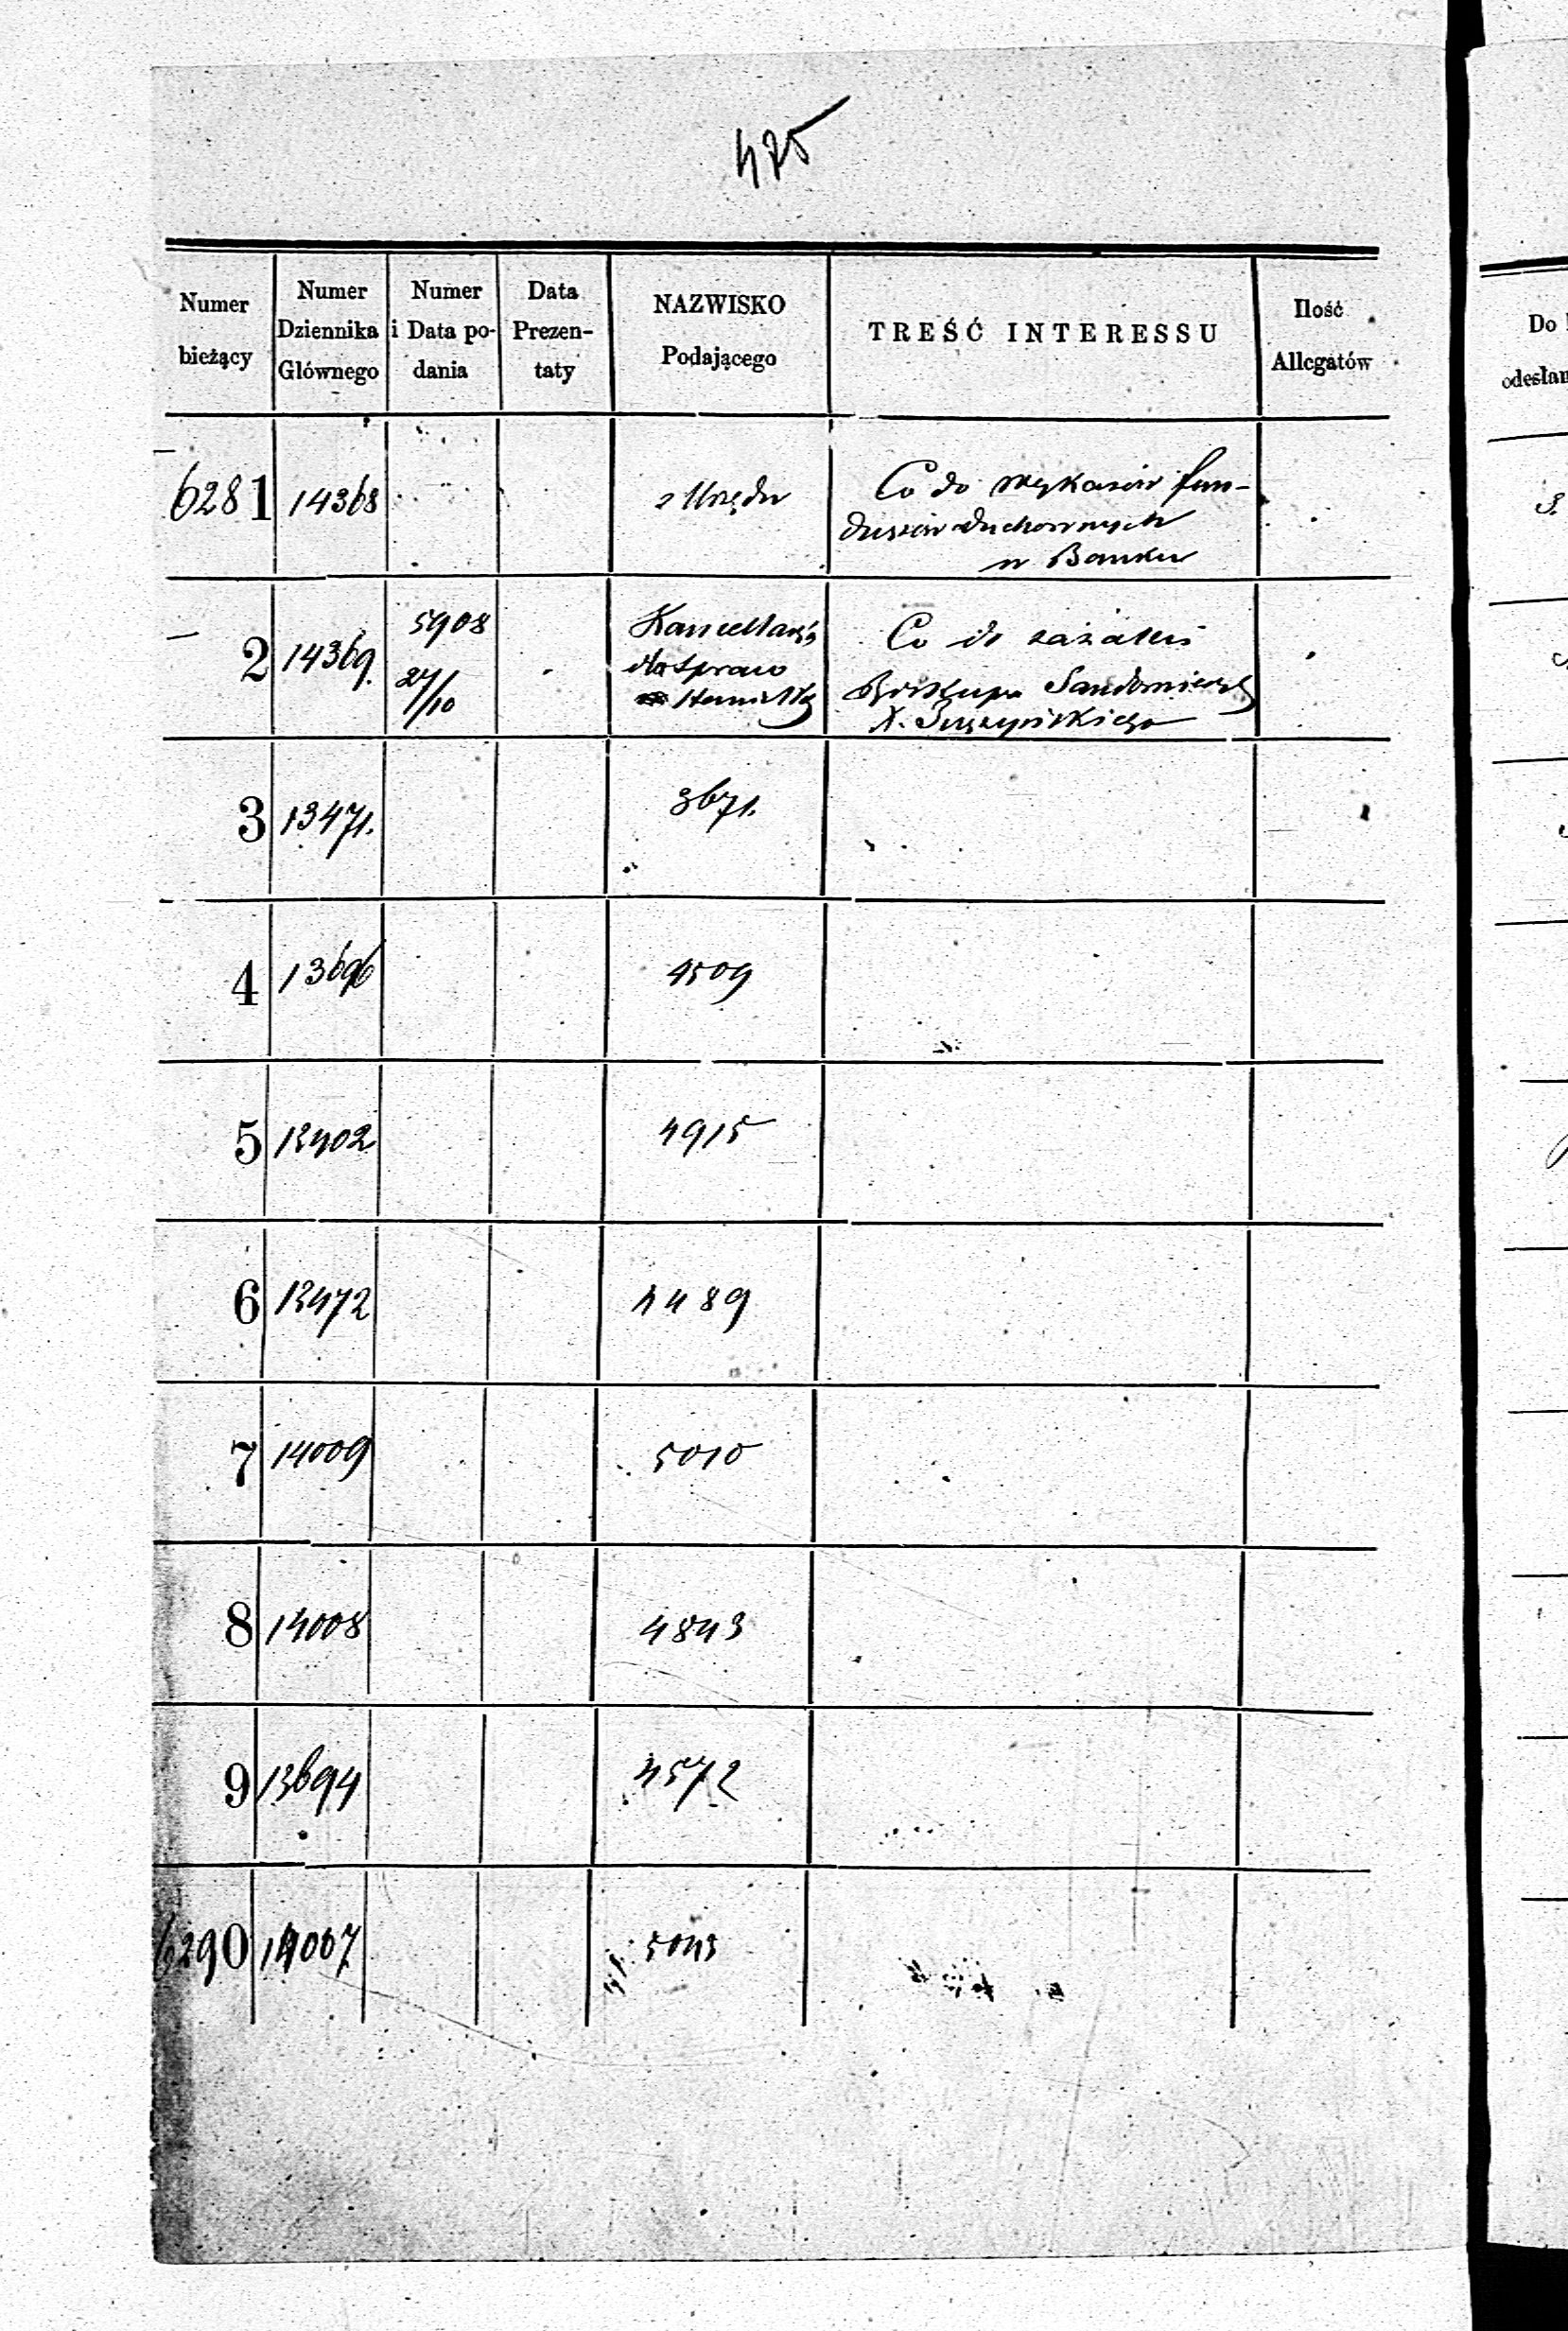 425
Numer bieżący
Numer Dziennika Głównego
Numer i Data podania
Data Prezentaty
NAZWISKO Podającego
TREŚĆ INTERESSU
Ilość Allegatów
Do
odesłan
6281 14368 z Urzędu Co do wykazów fun-
duszów duchownych
w Banku
2 14369. 5908 27/10 Kancellarya Co do zażaleń
dla spraw Biskupa Sandomiersk
X. Juszyńskiego
3 13471. 3671.
4 13696 4509
5 13402 4915
6 13472 4489
7 14009 5010
8 14008 4843
9 13694 4572
6290 14007 5043